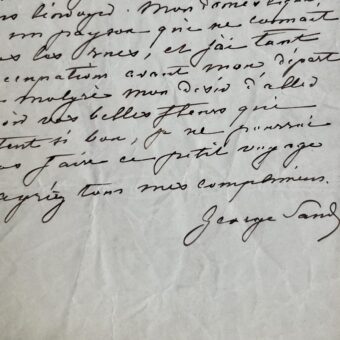 Mon domestique,
un paysan qui ne connait
les rues, et j'ai tant
occupations avant mon départ
malgré mon désir d'aller
voir vos belles fleurs que
sentent si bon, je ne pourrai
pas faire ce petit voyage
agréez tous mes complimens.
George Sand